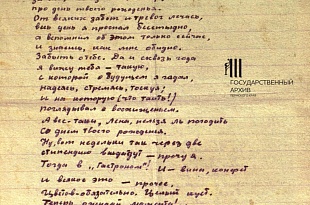 про день твоего рожденья.
От всяких забот и тревог лечась,
весь день я проспал бесстыдно,
а вспомнил об этом только сейчас,
и знаешь, как мне обидно.
Забыть о тебе. Да и сквозь года
я вижу тебя - такую,
с которой о будущем я гадал,
надеясь, стремясь, тоскуя;
и на которую (что таить!)
поглядывал с восхищеньем.
А вес-таки, лень, нельзя ль погодить
со днем твоего рождения,
Ну, вот недельки так через две
стипендию выдадут - прочу я.
Тогда в "Гастроном"! И - вина, конфет
и всякое это - прочее.
Цветов - обязательно. Целый куст.
Теперь
ГОСУДАРСТВЕННЫЙ
АРХИВ